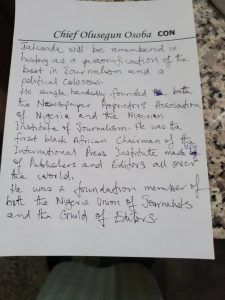 Chief Olusegun Osoba CON
Jakande will be remembered in
history as a personification of the
best in Journalism and a
political Colossus.
He single handedly founded both
the Newspaper Proprietors Association
of Nigeria and the Nigerian
Institute of Journalism. He was the
first black African Chairman of the
International Press Institute made up
of Publishers and Editors all over
the world.
He was a foundation member of
both the Nigeria Union of Journalists
and the Guild of Editors.